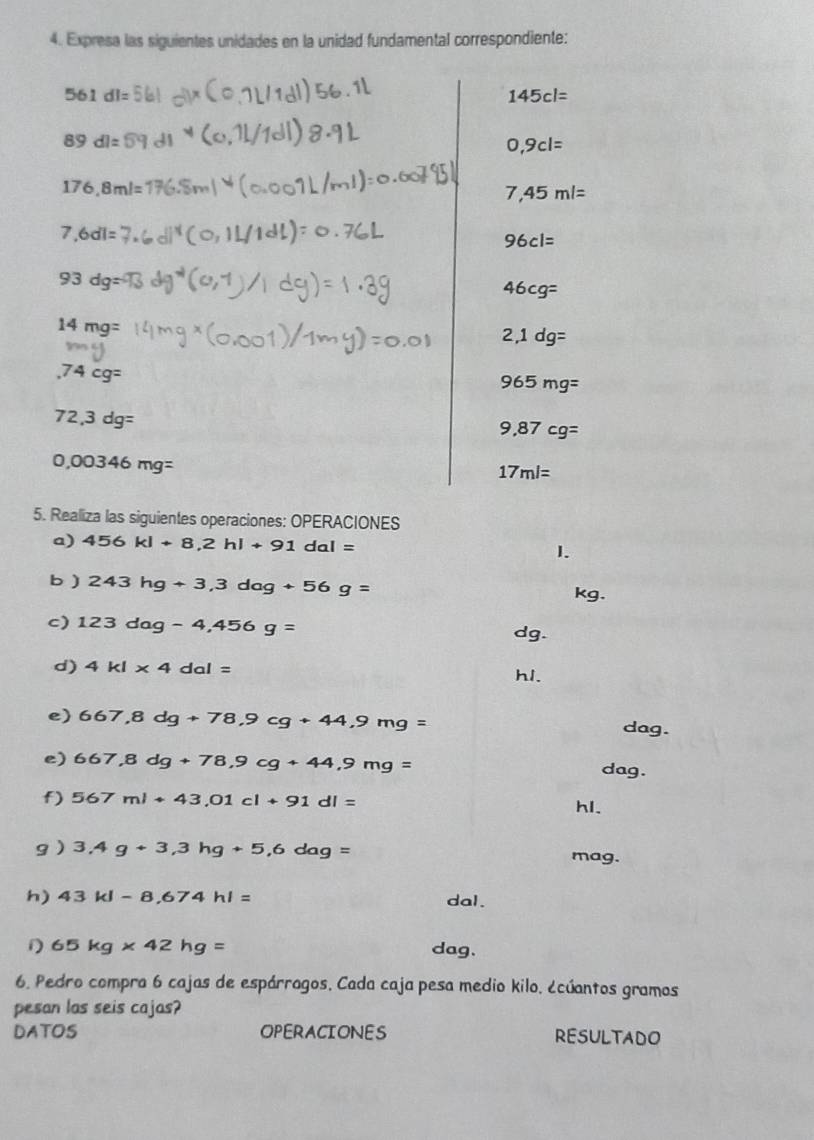 4. Expresa las siguientes unidades en la unidad fundamental correspondiente:
561 dl= 561 dl × (0,1L/1dl) 56.1L
89 dl= 59 dl * (0,1L/1dl) 8.9L
176,8ml= 176.8ml * (0.001L/ml)=
7,6dl= 7.6 dl * (0,1L/1dL)= 0.76L
93 dg= 93 dg * (0,1)/1 dg)= 1.3g
14 mg= 14mg × (0.001)/1my)=0.01
my
,74 cg=
72,3 dg=
0,00346 mg=
145cl=
0,9cl=
7,45 ml=
96cl=
46cg=
2,1 dg=
965 mg=
9,87 cg=
17ml=
5. Realiza las siguientes operaciones: OPERACIONES
a) 456 kl + 8,2 hl + 91 dal = l.
b ) 243 hg + 3,3 dag + 56 g = kg.
c) 123 dag - 4,456 g = dg.
d) 4 kl x 4 dal = hl.
e) 667,8 dg + 78,9 cg + 44,9 mg = dag.
e) 667,8 dg + 78,9 cg + 44,9 mg = dag.
f) 567 ml + 43,01 cl + 91 dl = hl.
g ) 3,4 g + 3,3 hg + 5,6 dag = mag.
h) 43 kl - 8,674 hl = dal.
i) 65 kg x 42 hg = dag.
6. Pedro compra 6 cajas de espárragos. Cada caja pesa medio kilo. ¿cúantos gramos
pesan las seis cajas?
DATOS OPERACIONES RESULTADO